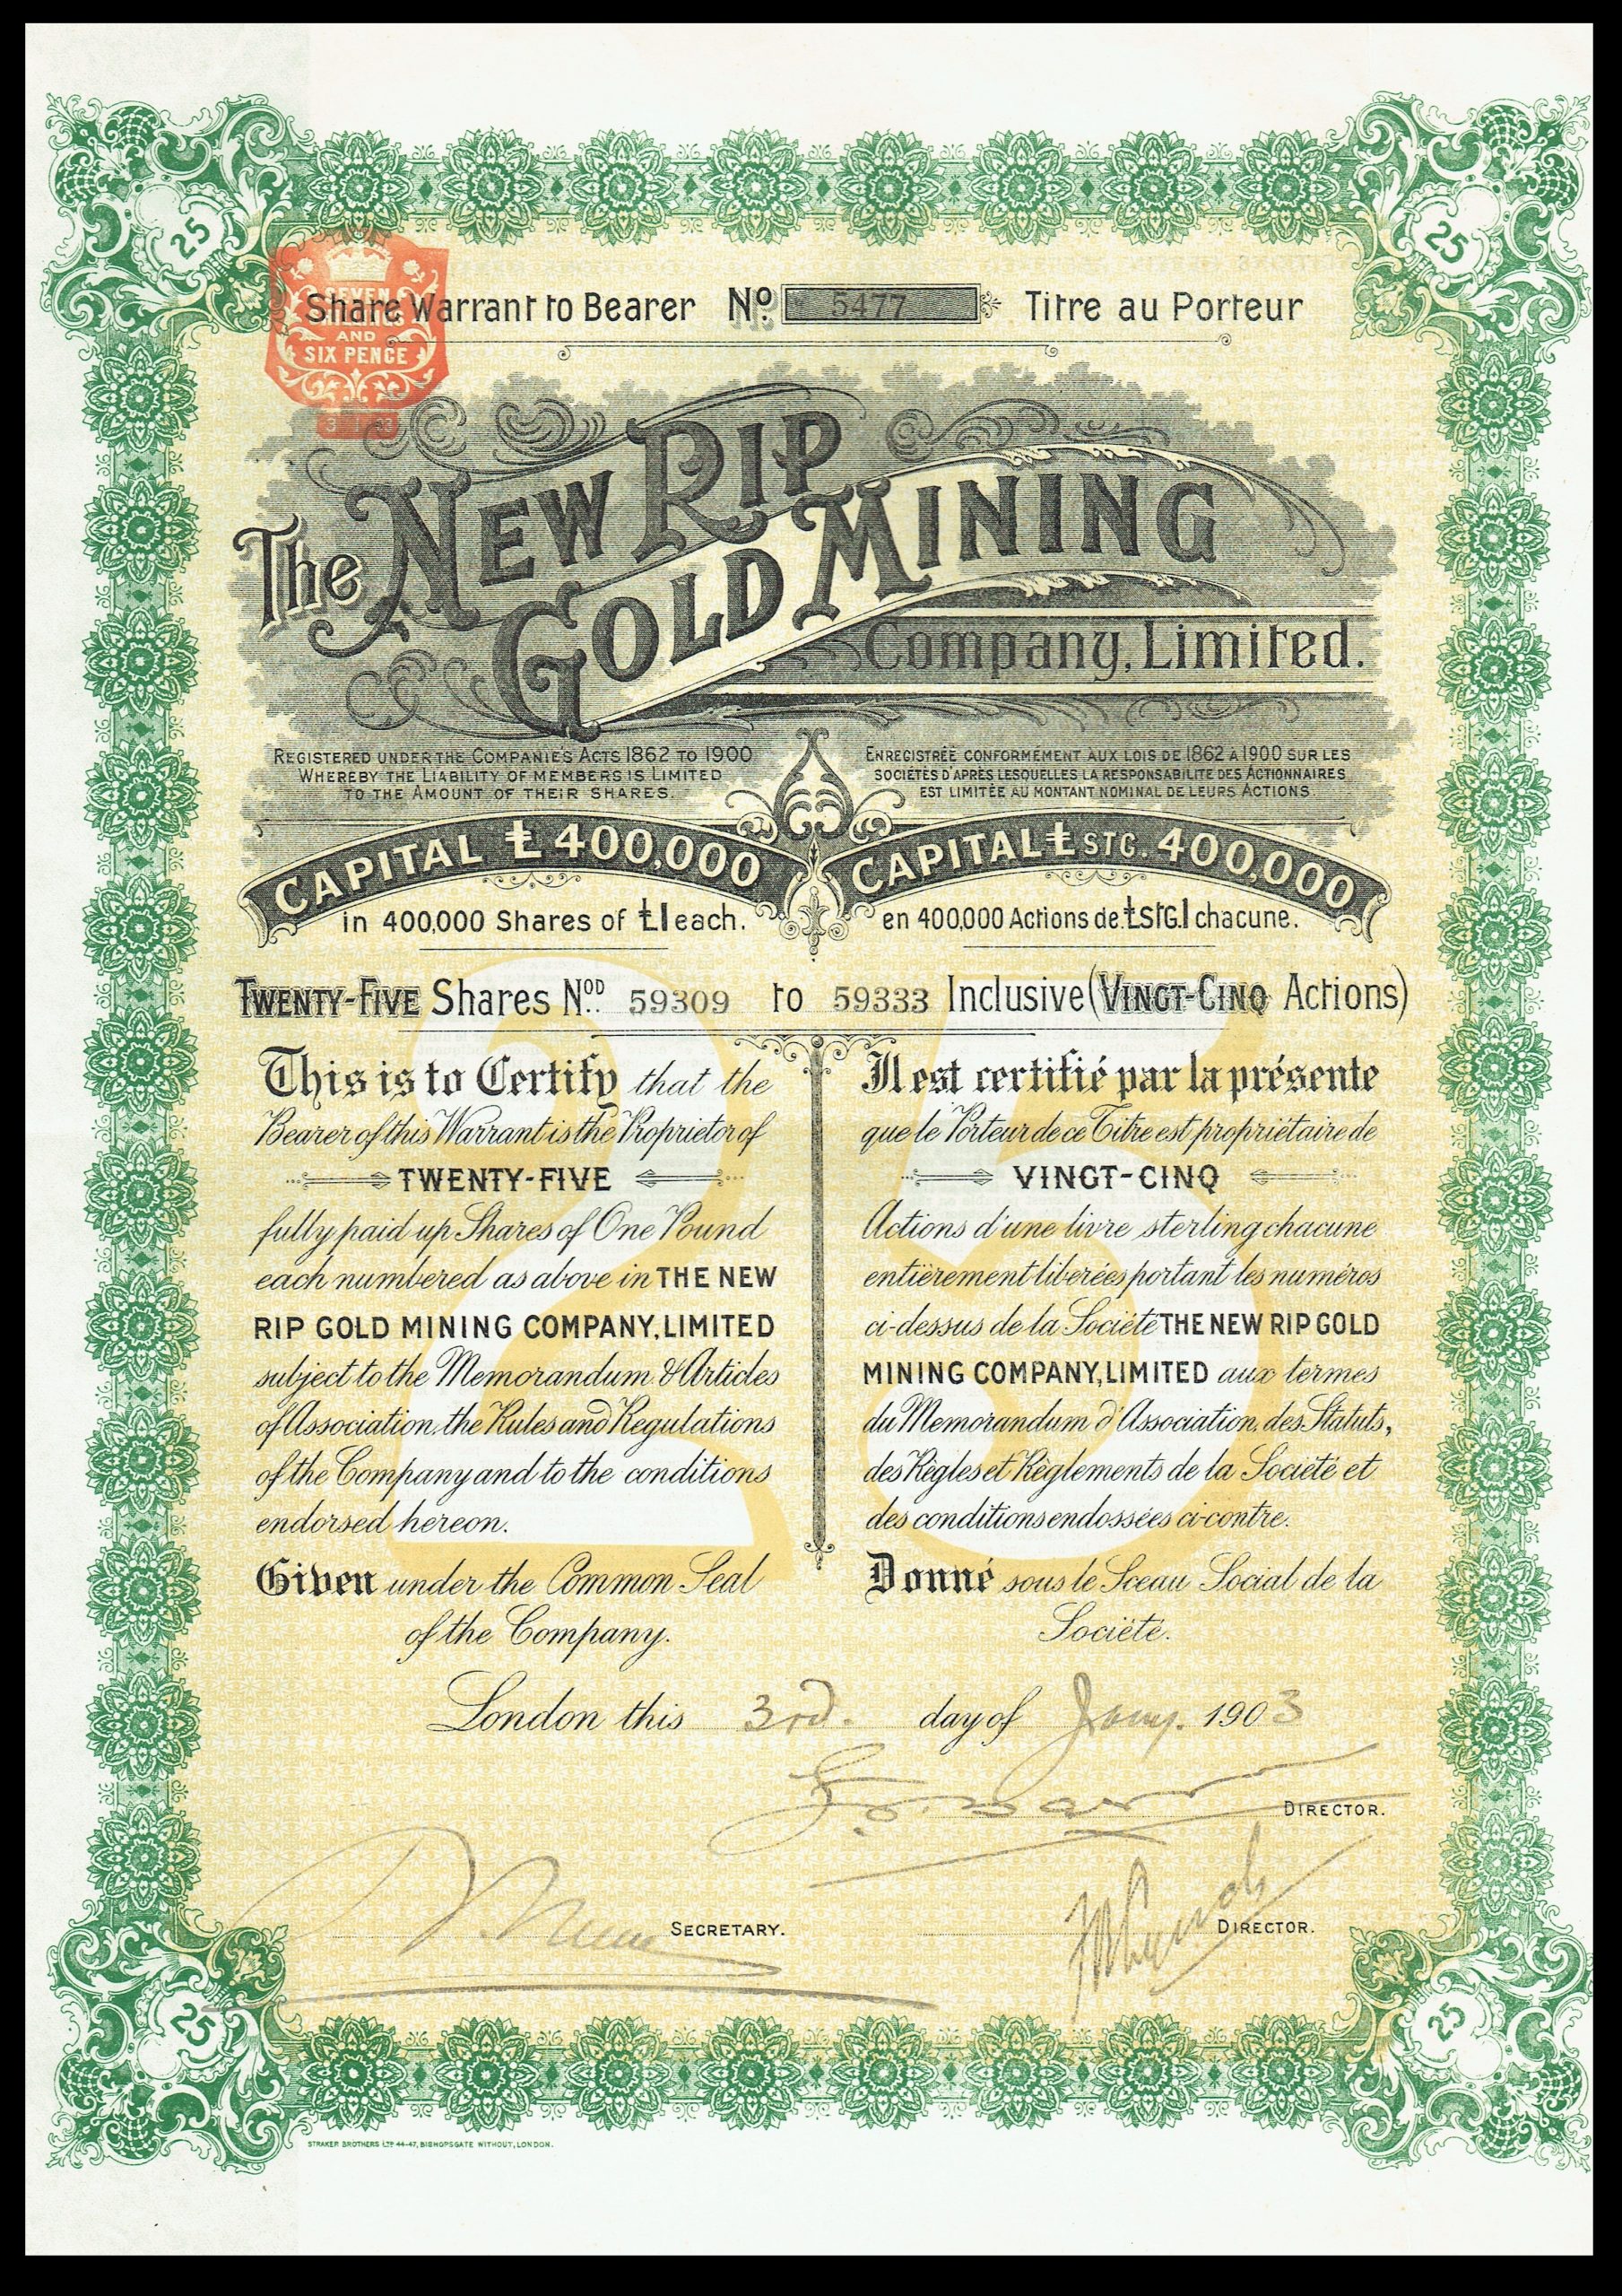 25
25
SEVEN
SHILLINGS
AND
SIX PENCE
3 1 03
Share Warrant to Bearer No. 5477 Titre au Porteur
The New Rip
Gold Mining
Company, Limited.
Registered under the Companies Acts 1862 to 1900
Whereby the Liability of members is Limited
to the Amount of their Shares.
Enregistrée conformément aux lois de 1862 à 1900 sur les
sociétés d'après lesquelles la responsabilité des Actionnaires
est limitée au montant nominal de leurs Actions
CAPITAL £400,000
in 400,000 Shares of £1 each.
CAPITAL £ STG. 400,000
en 400,000 Actions de £STG.1 chacune.
Twenty-Five Shares Nod. 59309 to 59333 Inclusive (Vingt-Cinq Actions)
25
This is to Certify that the
Bearer of this Warrant is the Proprietor of
TWENTY-FIVE
fully paid up Shares of One Pound
each numbered as above in THE NEW
RIP GOLD MINING COMPANY, LIMITED
subject to the Memorandum & Articles
of Association, the Rules and Regulations
of the Company and to the conditions
endorsed hereon.
Given under the Common Seal
of the Company.
Il est certifié par la présente
que le Porteur de ce Titre est propriétaire de
VINGT-CINQ
Actions d'une livre sterling chacune
entièrement liberées portant les numéros
ci-dessus de la Société THE NEW RIP GOLD
MINING COMPANY, LIMITED aux termes
du Memorandum d'Association, des Statuts,
des Règles et Règlements de la Société et
des conditions endossées ci-contre.
Donné sous le Sceau Social de la
Société.
London this 3rd. day of Jany. 1903
DIRECTOR.
SECRETARY.
DIRECTOR.
25
25
STRAKER BROTHERS LTD 44-47, BISHOPSGATE WITHOUT, LONDON.